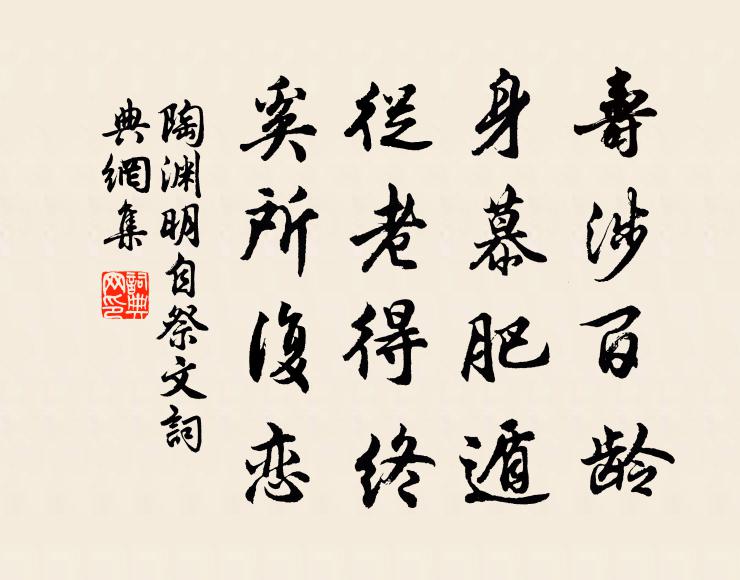 壽涉百齡
身慕肥遁
從老得終
奚所復恋
陶渊明自祭文詞
典網集
詞典網印